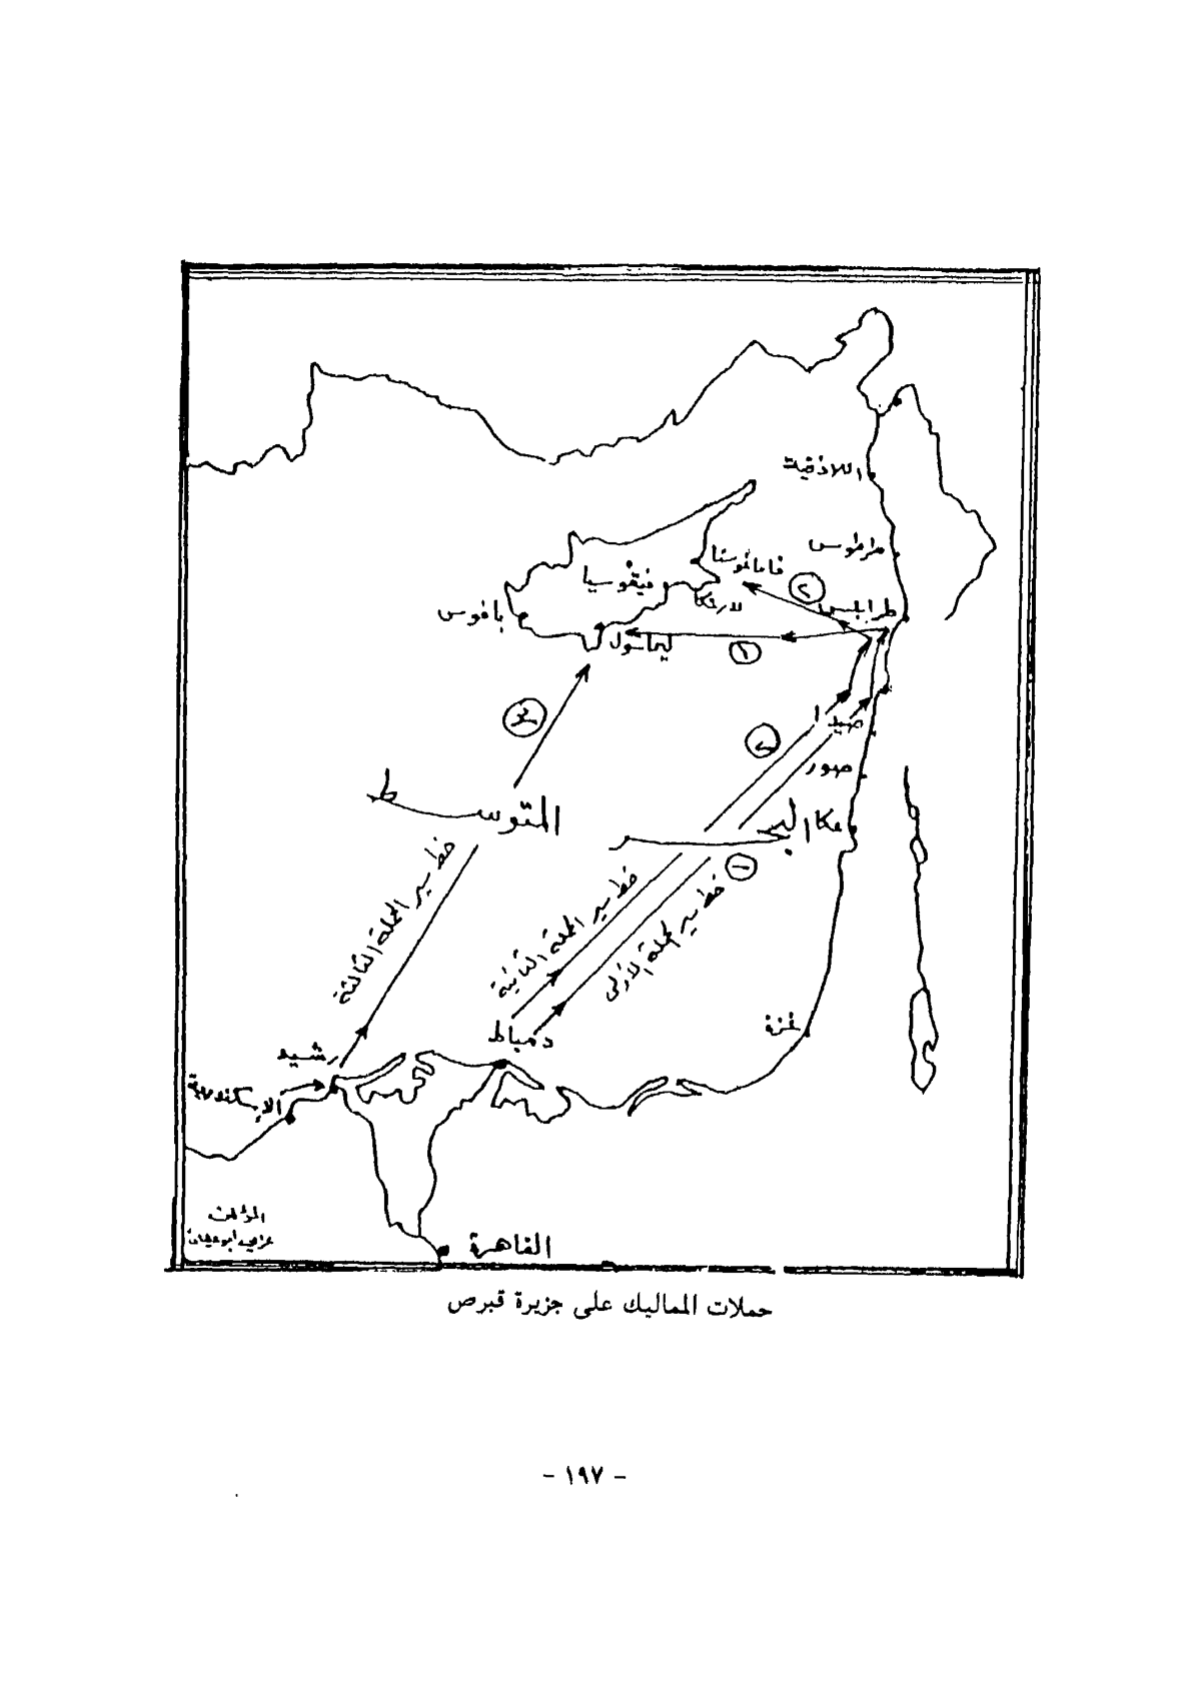 اللاذقية
طرطوس
فاماغوستا
٢
نيقوسيا
لارنكا
طرابلس
بافوس
ليماسول
١
٣
صيدا
٢
صور
المتوسط
عكا
البحر
١
خط سير الحملة الثالثة
خط سير الحملة الثانية
خط سير الحملة الأولى
غزة
دمياط
رشيد
الإسكندرية
المؤلف
القاهرة
حملات المماليك على جزيرة قبرص
- ١٩٧ -